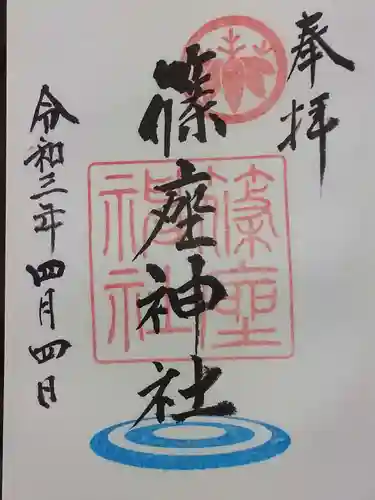 奉拝
篠座神社
令和三年四月四日
篠座
神社